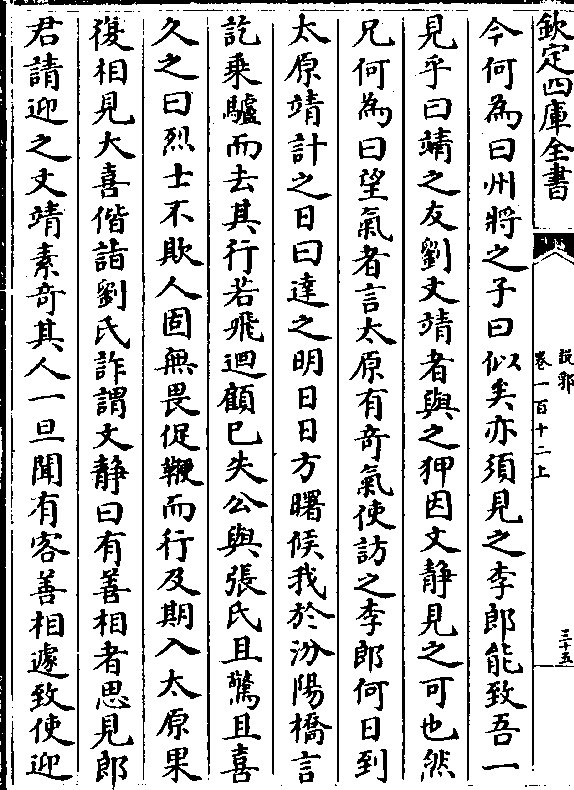 欽定四庫全書
說郛
卷一百十二上
三十五
今何為曰州將之子曰似矣亦須見之李郎能致吾一
見乎曰靖之友劉文靖者與之狎因文靜見之可也然
兄何為曰望氣者言太原有奇氣使訪之李郎何日到
太原靖計之日曰達之明日日方曙候我於汾陽橋言
訖乗驢而去其行若飛迴顧已失公與張氏且驚且喜
久之曰烈士不欺人固無畏促鞭而行及期入太原果
復相見大喜偕詣劉氏詐謂文靜曰有善相者思見郎
君請迎之文靖素奇其人一旦聞有客善相遽致使迎